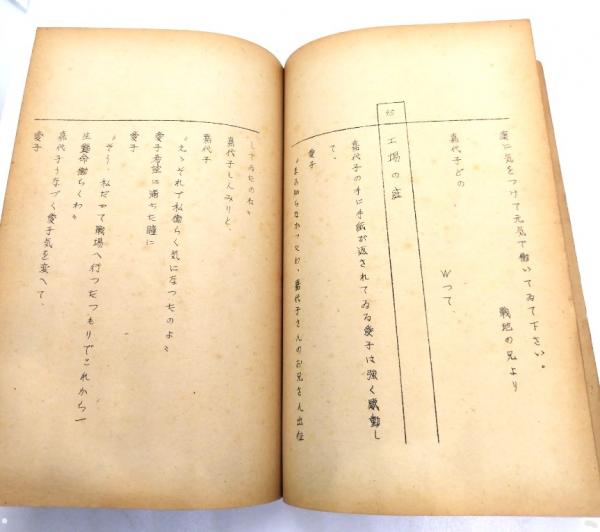 体に気をつけて元気で働いてゐて下さい。
戦地の兄より
嘉代子どの
Wって、
45 工場の庭
嘉代子の手に手紙が返されてゐる愛子は強く感動し
て、
愛子
嘉代子さんのお兄さん出征
してゐたのね〃
嘉代子しんみりと、
嘉代子
〃えゝそれで私働らく気になつたのよ〃
愛子希望に満ちた瞳に
愛子
〃そう、私だつて戦場へ行つたつもりでこれから一
生懸命働らくわ〃
嘉代子うなづく愛子気を変へて、
愛子